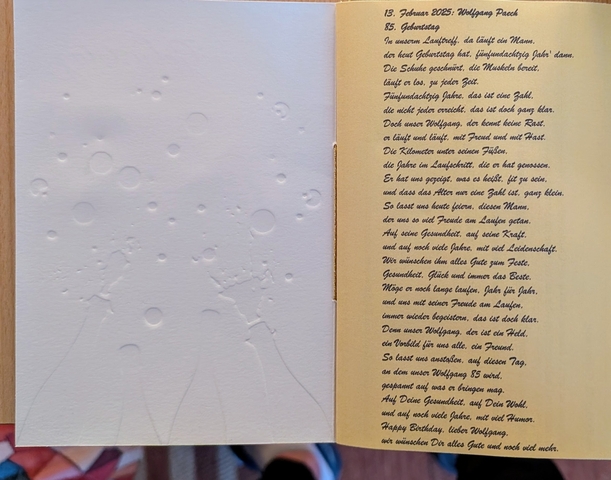 13. Februar 2025: Wolfgang Paech
85. Geburtstag
In unserm Lauftreff, da läuft ein Mann,
der heut Geburtstag hat, fünfundachtzig Jahr' dann.
Die Schuhe geschnürt, die Muskeln bereit,
läuft er los, zu jeder Zeit.
Fünfundachtzig Jahre, das ist eine Zahl,
die nicht jeder erreicht, das ist doch ganz klar.
Doch unser Wolfgang, der kennt keine Rast,
er läuft und läuft, mit Freud und mit Hast.
Die Kilometer unter seinen Füßen,
die Jahre im Laufschritt, die er hat genossen.
Er hat uns gezeigt, was es heißt, fit zu sein,
und dass das Alter nur eine Zahl ist, ganz klein.
So lasst uns heute feiern, diesen Mann,
der uns so viel Freude am Laufen getan.
Auf seine Gesundheit, auf seine Kraft,
und auf noch viele Jahre, mit viel Leidenschaft.
Wir wünschen ihm alles Gute zum Feste,
Gesundheit, Glück und immer das Beste.
Möge er noch lange laufen, Jahr für Jahr,
und uns mit seiner Freude am Laufen,
immer wieder begeistern, das ist doch klar.
Denn unser Wolfgang, der ist ein Held,
ein Vorbild für uns alle, ein Freund.
So lasst uns anstoßen, auf diesen Tag,
an dem unser Wolfgang 85 wird,
gespannt auf was er bringen mag.
Auf Deine Gesundheit, auf Dein Wohl,
und auf noch viele Jahre, mit viel Humor.
Happy Birthday, lieber Wolfgang,
wir wünschen Dir alles Gute und noch viel mehr.